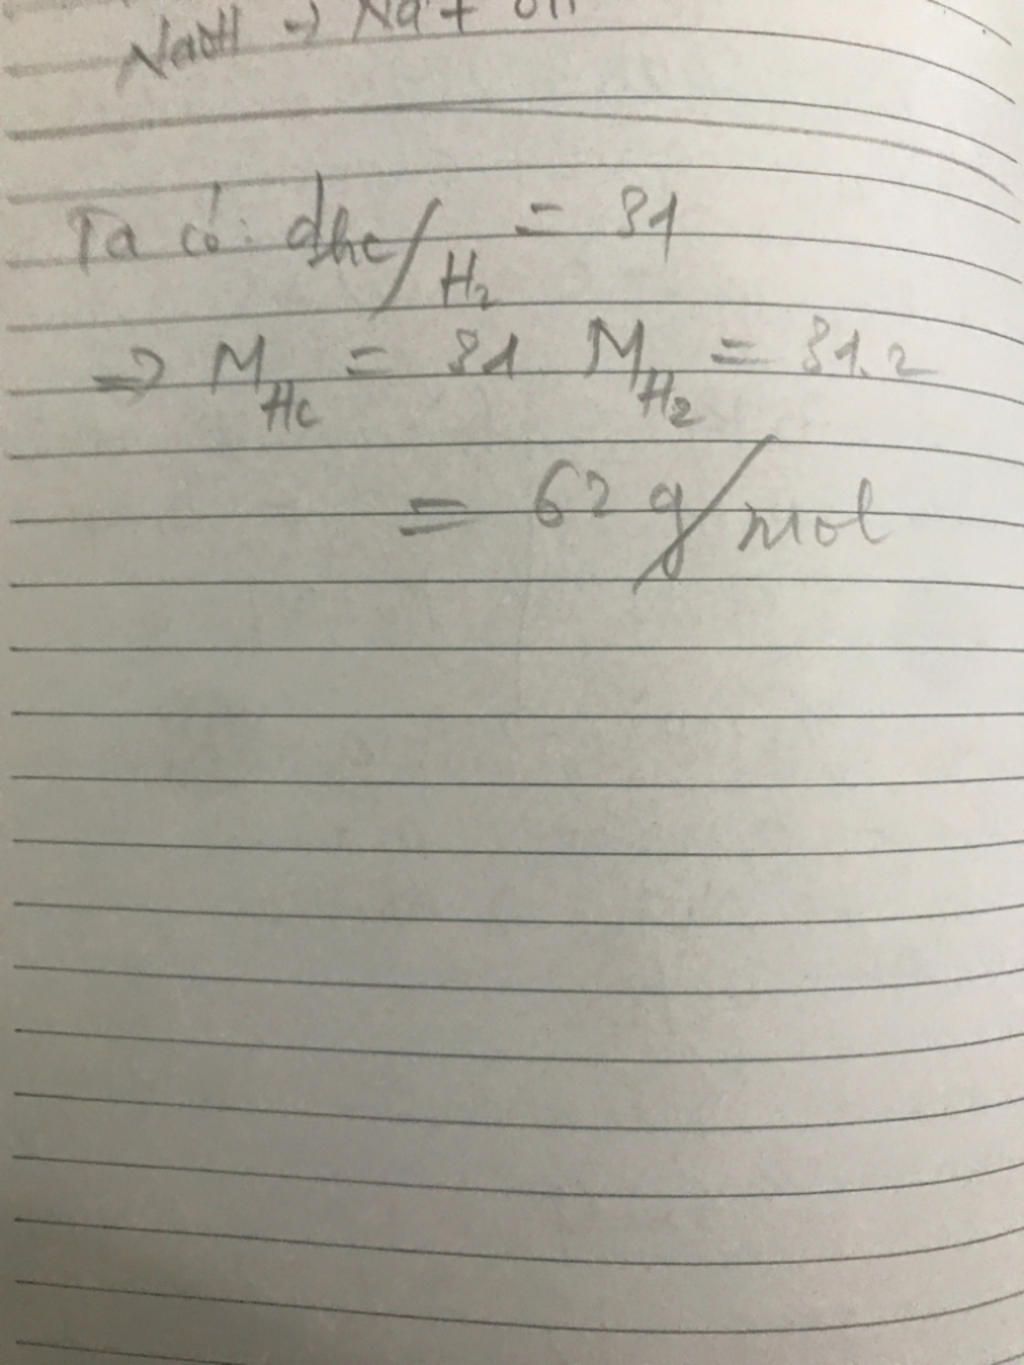 NaOH → Na + OH
Ta có: dhc/H₂ = 31
=> M_Hc = 31 M_H₂ = 31.2
= 62 g/mol